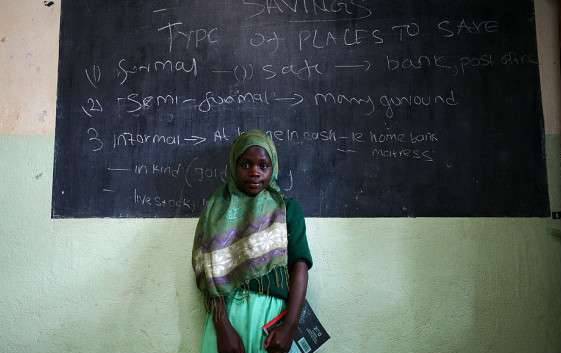 SAVINGS
TYPE of PLACES TO SAVE
(1) formal — (1) safe → bank, post
(2) - Semi-formal → many guround
3 informal → At home in cash - ie home bank
— matress
— in kind (gold
— livestock,